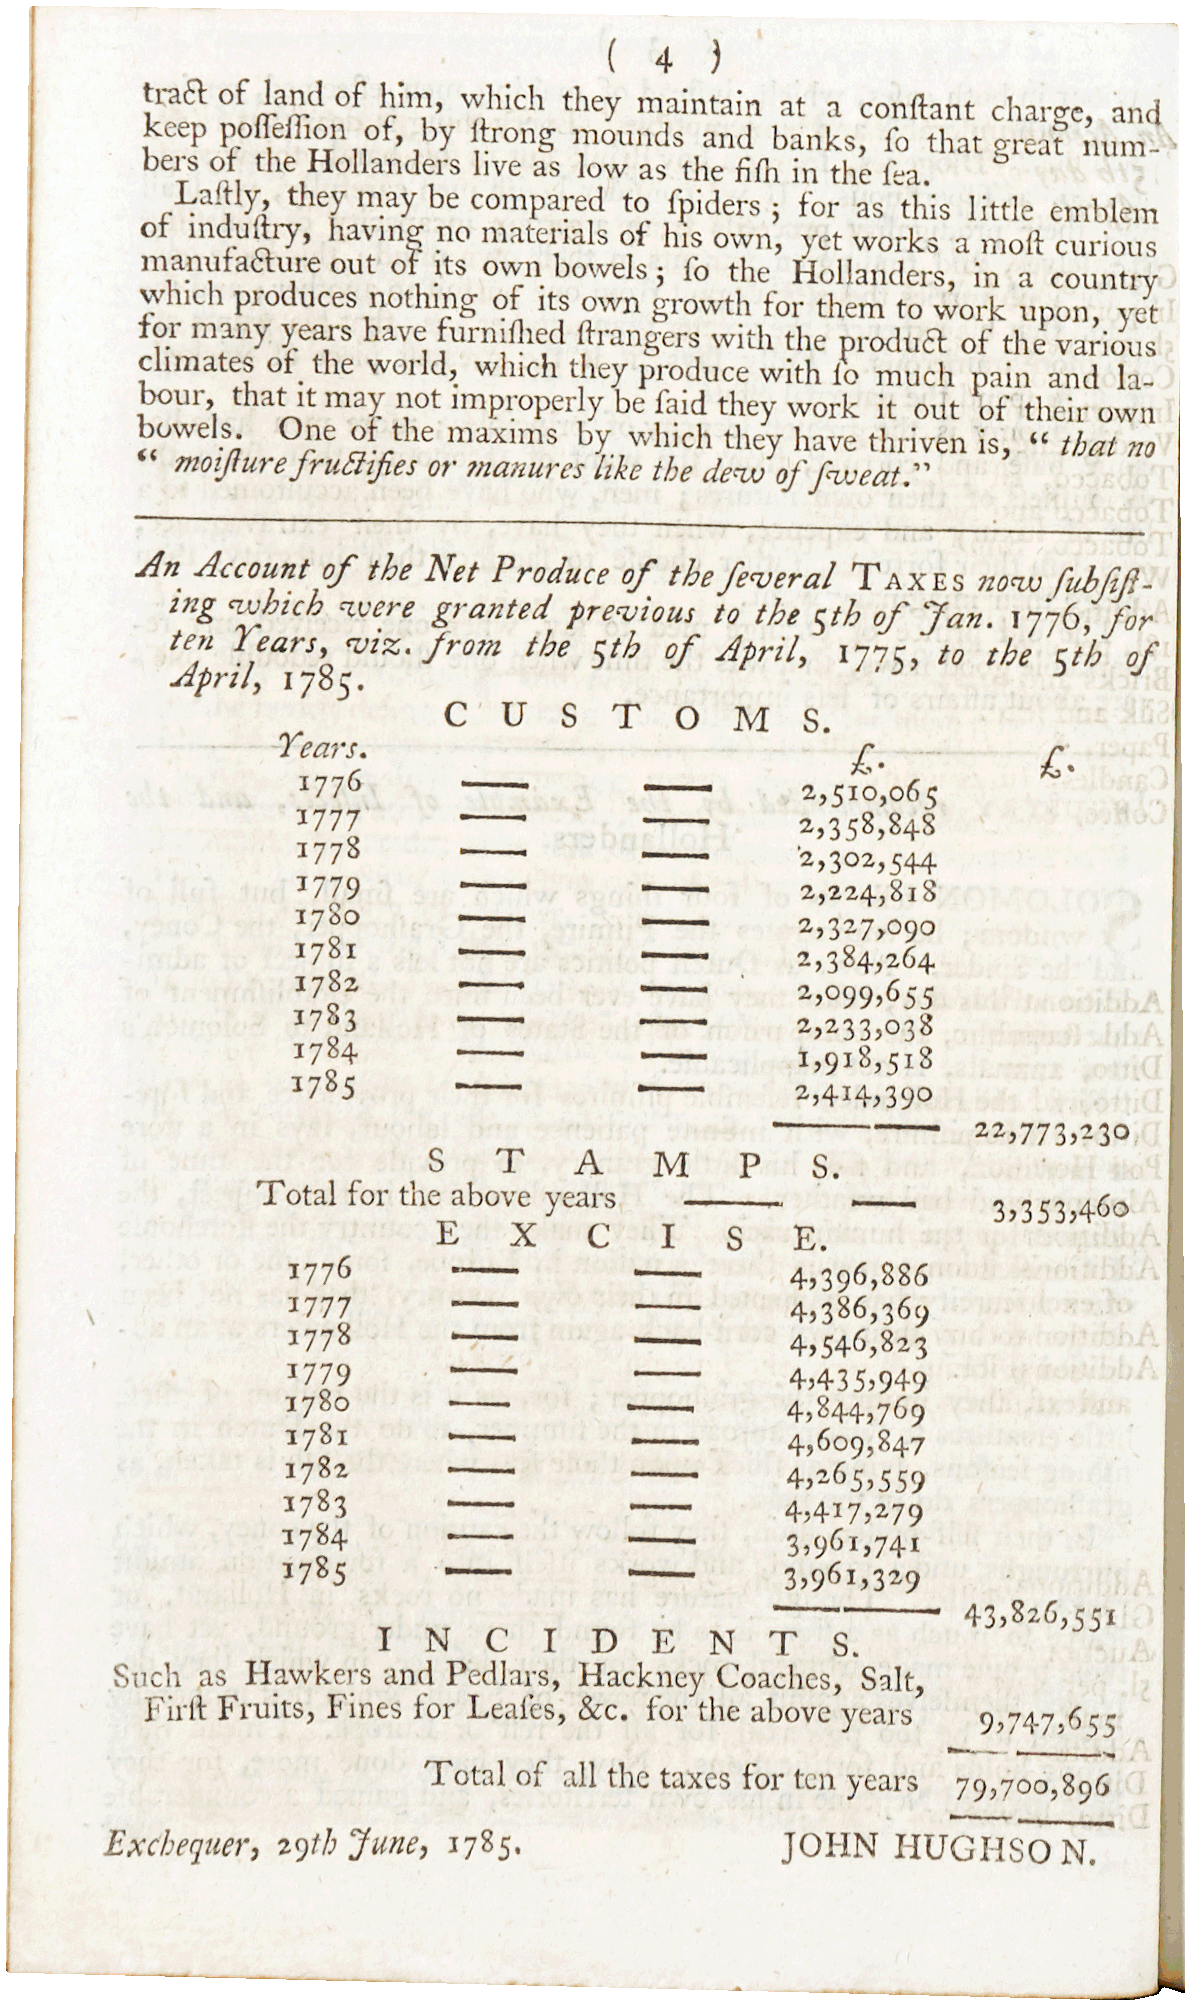 ( 4 )
tract of land of him, which they maintain at a conſtant charge, and
keep poſſeſſion of, by ſtrong mounds and banks, ſo that great num-
bers of the Hollanders live as low as the fiſh in the ſea.
Laſtly, they may be compared to ſpiders ; for as this little emblem
of induſtry, having no materials of his own, yet works a moſt curious
manufacture out of its own bowels ; ſo the Hollanders, in a country
which produces nothing of its own growth for them to work upon, yet
for many years have furniſhed ſtrangers with the product of the various
climates of the world, which they produce with ſo much pain and la-
bour, that it may not improperly be ſaid they work it out of their own
bowels. One of the maxims by which they have thriven is, “ that no
“ moiſture fructifies or manures like the dew of ſweat.”
An Account of the Net Produce of the ſeveral TAXES now ſubſiſt-
ing which were granted previous to the 5th of Jan. 1776, for
ten Years, viz. from the 5th of April, 1775, to the 5th of
April, 1785.
CUSTOMS.
Years. £. £.
1776 — — 2,510,065
1777 — — 2,358,848
1778 — — 2,302,544
1779 — — 2,224,818
1780 — — 2,327,090
1781 — — 2,384,264
1782 — — 2,099,655
1783 — — 2,233,038
1784 — — 1,918,518
1785 — — 2,414,390
22,773,230
STAMPS.
Total for the above years — — 3,353,460
EXCISE.
1776 — — 4,396,886
1777 — — 4,386,369
1778 — — 4,546,823
1779 — — 4,435,949
1780 — — 4,844,769
1781 — — 4,609,847
1782 — — 4,265,559
1783 — — 4,417,279
1784 — — 3,961,741
1785 — — 3,961,329
43,826,551
INCIDENTS.
Such as Hawkers and Pedlars, Hackney Coaches, Salt,
Firſt Fruits, Fines for Leaſes, &c. for the above years 9,747,655
Total of all the taxes for ten years 79,700,896
Exchequer, 29th June, 1785. JOHN HUGHSON.